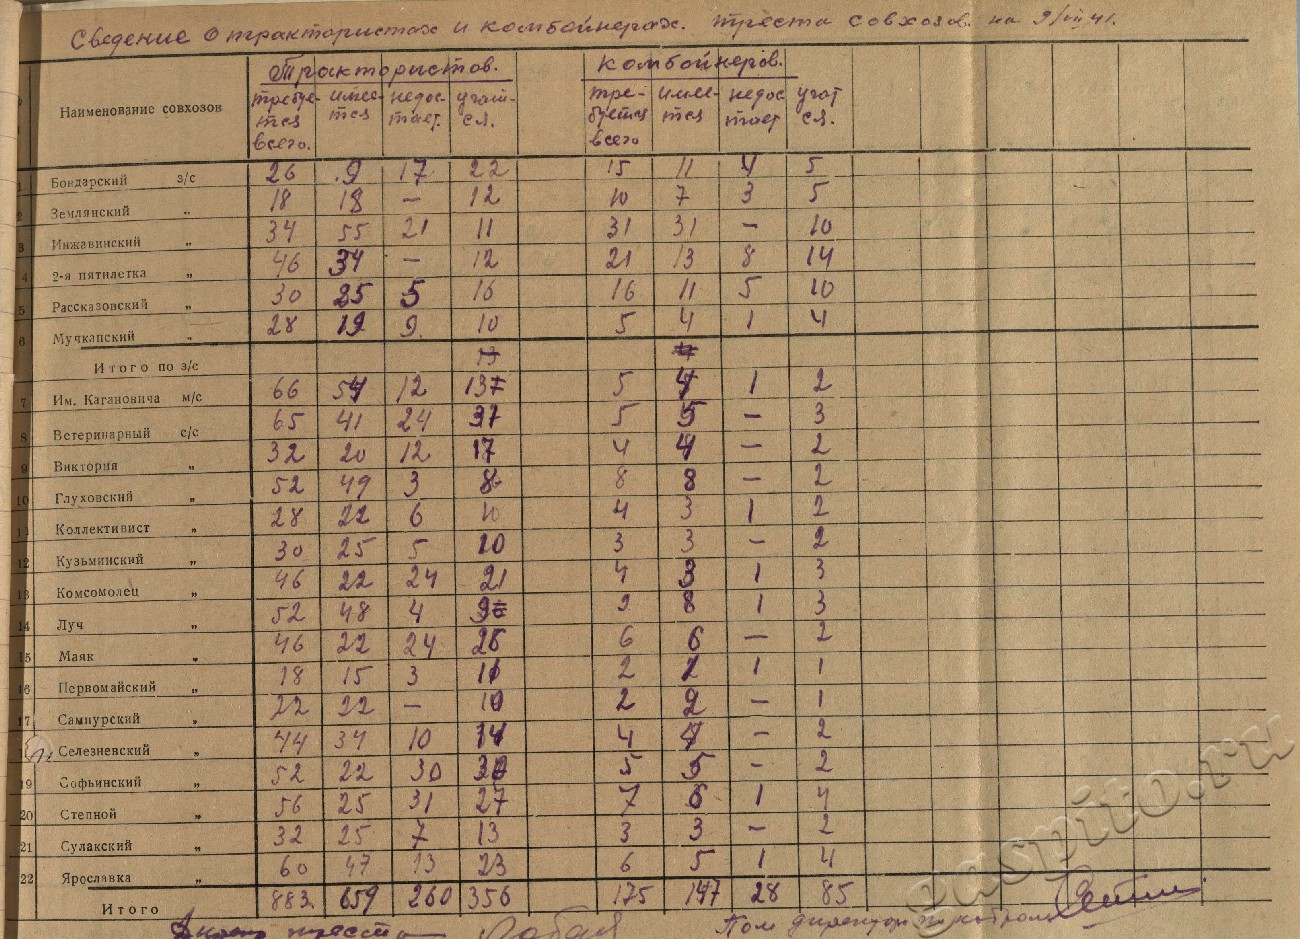 Сведение о трактористах и комбайнерах треста совхозов на 9/VII 41г.
Наименование совхозов Трактористов. комбайнеров.
требуется всего. имеется недостает. учатся. требуется всего имеется недостает учатся.
1 Бондарский з/с 26 9 17 22 15 11 4 5
2 Землянский „ 18 18 — 12 10 7 3 5
3 Инжавинский „ 34 55 21 11 31 31 — 10
4 2-я пятилетка „ 46 34 — 12 21 13 8 14
5 Рассказовский „ 30 25 5 16 16 11 5 10
6 Мучкапский „ 28 19 9 10 5 4 1 4
Итого по з/с
7 Им. Кагановича м/с 66 54 12 13 5 4 1 2
8 Ветеринарный с/с 65 41 24 37 5 5 — 3
9 Виктория „ 32 20 12 17 4 4 — 2
10 Глуховский „ 52 49 3 8 8 8 — 2
11 Коллективист „ 28 22 6 10 4 3 1 2
12 Кузьминский „ 30 25 5 10 3 3 — 2
13 Комсомолец „ 46 22 24 21 4 3 1 3
14 Луч „ 52 48 4 9 9 8 1 3
15 Маяк „ 46 22 24 26 6 6 — 2
16 Первомайский „ 18 15 3 11 2 1 1
17 Сампурский „ 22 22 — 10 2 2 — 1
Селезневский „ 44 34 10 14 4 4 — 2
19 Софьинский „ 52 22 30 30 5 5 - 2
20 Степной „ 56 25 31 27 7 6 1 4
21 Сулакский „ 32 25 7 13 3 3 — 2
22 Ярославка „ 60 47 13 23 6 5 1 4
Итого 883. 659 260 356 175 147 28 85
Директор треста Пом директора по кадрам
gaspito.ru